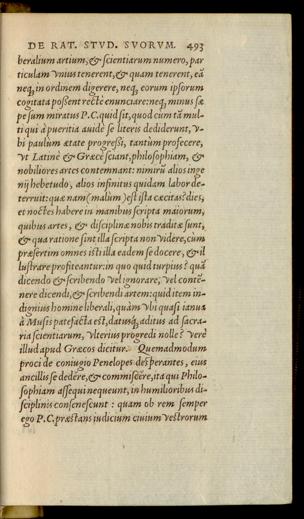 DE RAT. STVD. SVORVM. 493
beralium artium, & scientiarum numero, par
ticulam vnius tenerent, & quam tenerent, eā
neq, in ordinem digerere, neq, eorum ipsorum
cogitata possent rectè enunciare: neq, minus sæ
pe sum miratus P.C. quid sit, quod cum tā mul-
ti qui à pueritia auidè se literis dediderunt, v-
bi paulùm ætate progressi, tantùm profecere,
vt Latinè & Græcè sciant, philosophiam, &
nobiliores artes contemnant: nimirū alios inge
nij hebetudo, alios infinitus quidam labor de-
terruit: quæ nam (malùm) est ista cæcitas? dies,
et noctes habere in manibus scripta maiorum,
quibus artes, & disciplinæ nobis traditæ sunt,
& qua ratione sint illa scripta non videre, cùm
præsertim omnes isti illa eadem se docere, & il
lustrare profiteantur: in quo quid turpius? quā
dicendo & scribendo vel ignorare, vel contē-
nere dicendi, & scribendi artem: quid item in-
dignius homine liberali, quàm vbi quasi ianua
à Musis patefacta est, datusq, aditus ad sacra-
ria scientiarum, vlterius progredi nolle? verè
illud apud Græcos dicitur. Quemadmodum
proci de coniugio Penelopes desperantes, eius
ancillis se dedêre, & commiscêre, ita qui Philo-
sophiam assequi nequeunt, in humilioribus di-
sciplinis consenescunt: quam ob rem semper
ego P.C. præstans iudicium ciuium vestrorum